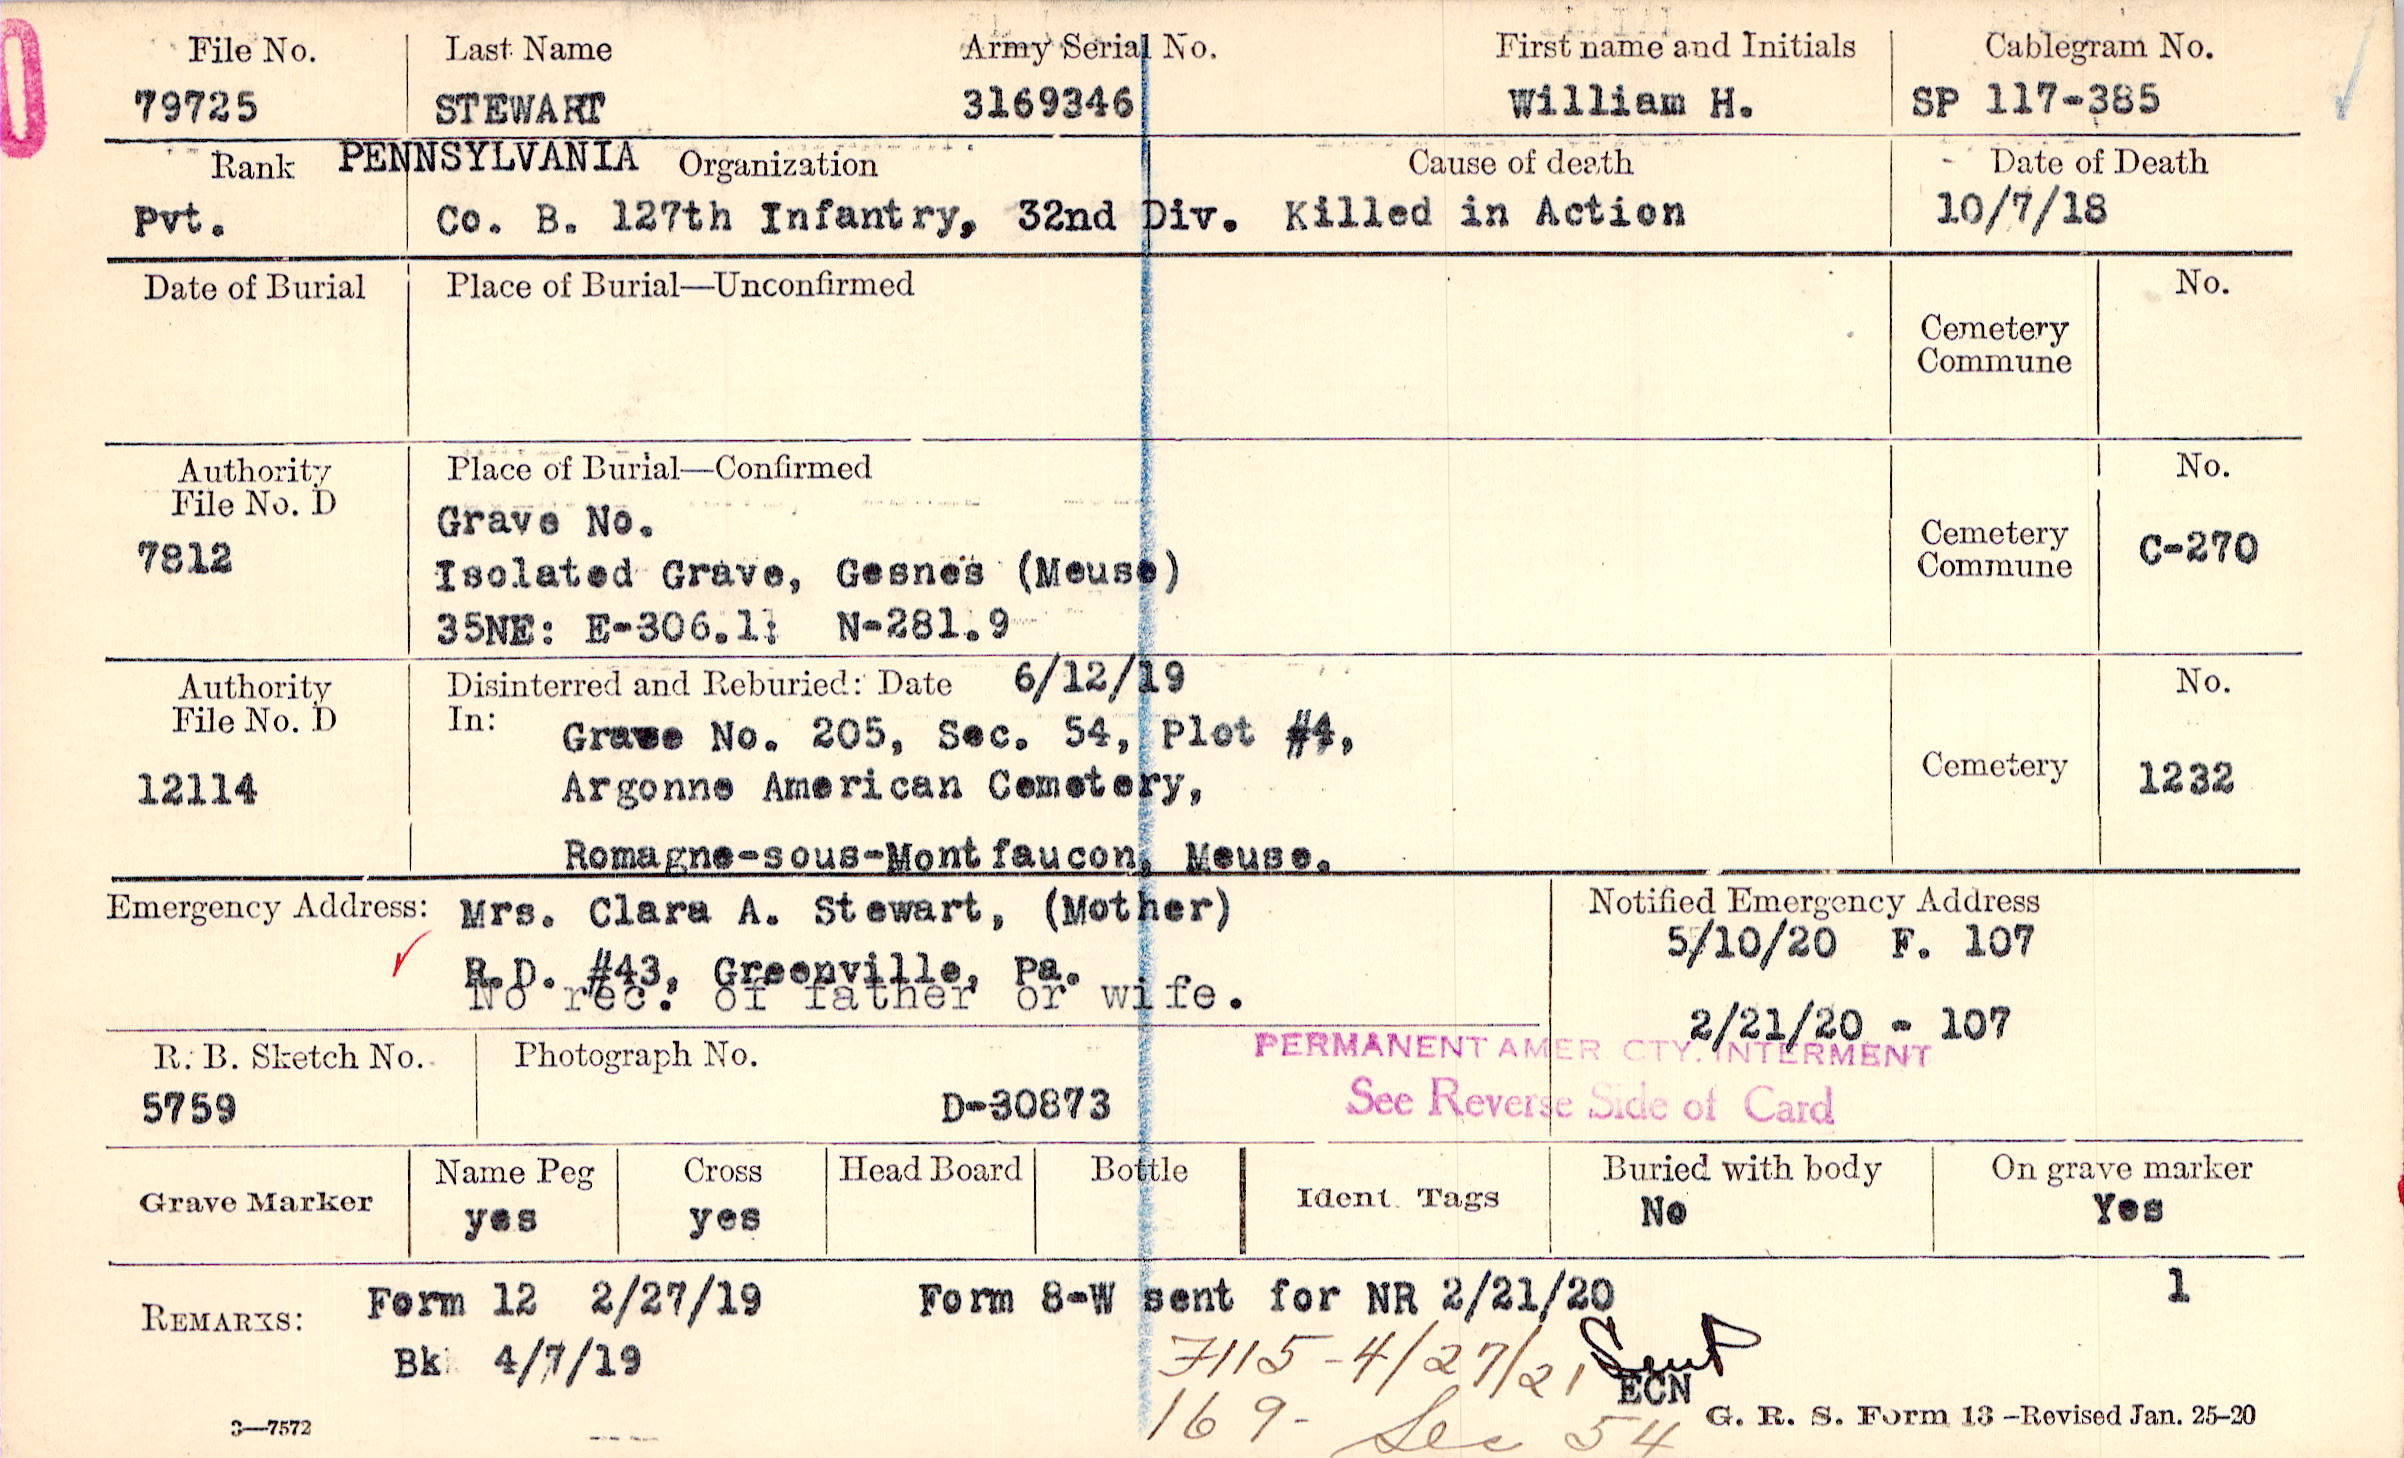 File No. Last Name Army Serial No. First name and Initials Cablegram No.
79725 STEWART 3169346 William H. SP 117-385
Rank PENNSYLVANIA Organization Cause of death Date of Death
Pvt. Co. B. 127th Infantry, 32nd Div. Killed in Action 10/7/18
Date of Burial Place of Burial—Unconfirmed No.
Cemetery
Commune
Authority Place of Burial—Confirmed No.
File No. D
Grave No.
7812 Cemetery C-270
Commune
Isolated Grave, Gesnes (Meuse)
35NE: E-306.1: N-281.9
Authority Disinterred and Reburied: Date 6/12/19 No.
File No. D In:
Grave No. 205, Sec. 54, Plot #4,
12114 Argonne American Cemetery, Cemetery 1232
Romagne-sous-Montfaucon, Meuse.
Emergency Address: Mrs. Clara A. Stewart, (Mother) Notified Emergency Address
R.D. #43, Greenville, Pa. 5/10/20 F. 107
No rec. of father or wife.
2/21/20 - 107
PERMANENT AMER CTY. INTERMENT
R. B. Sketch No. Photograph No.
5759 D-30873 See Reverse Side of Card
Grave Marker Name Peg Cross Head Board Bottle Ident. Tags Buried with body On grave marker
yes yes No Yes
REMARKS: Form 12 2/27/19 Form 8-W sent for NR 2/21/20 1
Bk 4/7/19 7115-4/27/21 Sent
ECN
169- Sec 54
3—7572 G. R. S. Form 13 -Revised Jan. 25-20